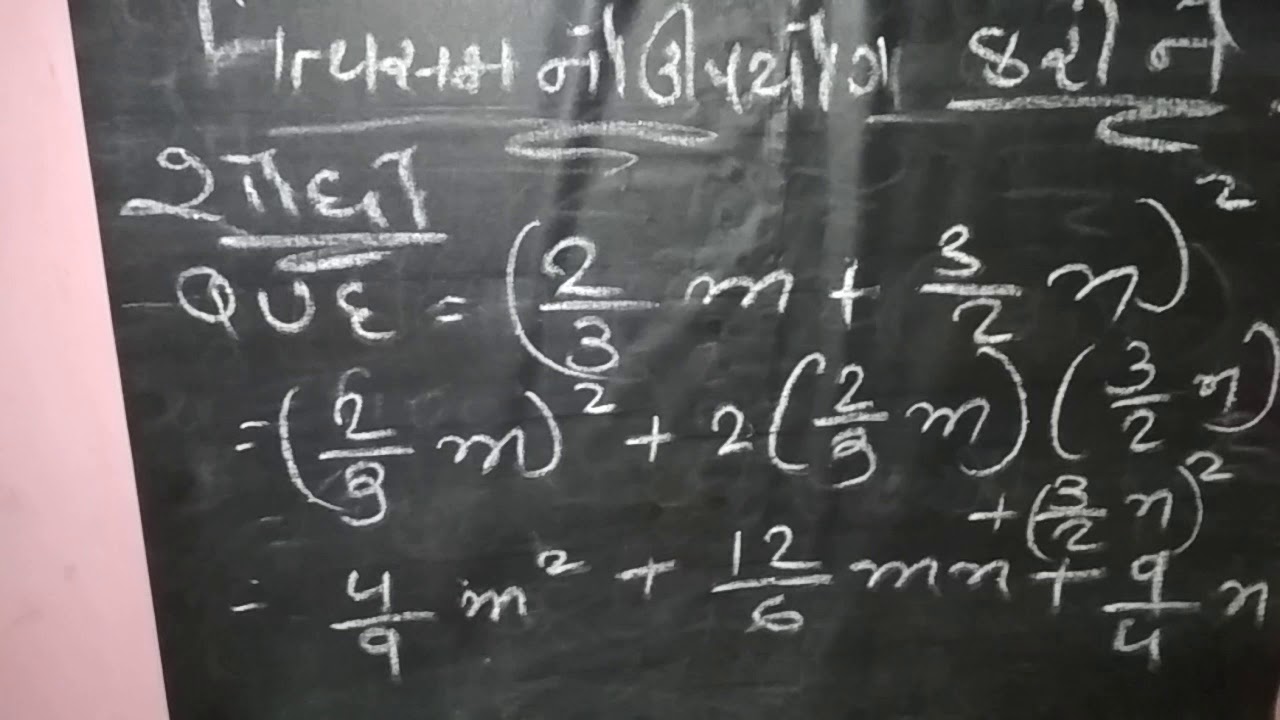 નિત્યસમ નો ઉપયોગ કરી ને
શોધો
વર્ગ = (2/3 m + 3/2 n)²
= (2/3 m)² + 2(2/3 m)(3/2 n)
+ (3/2 n)²
= 4/9 m² + 12/6 mn + 9/4 n